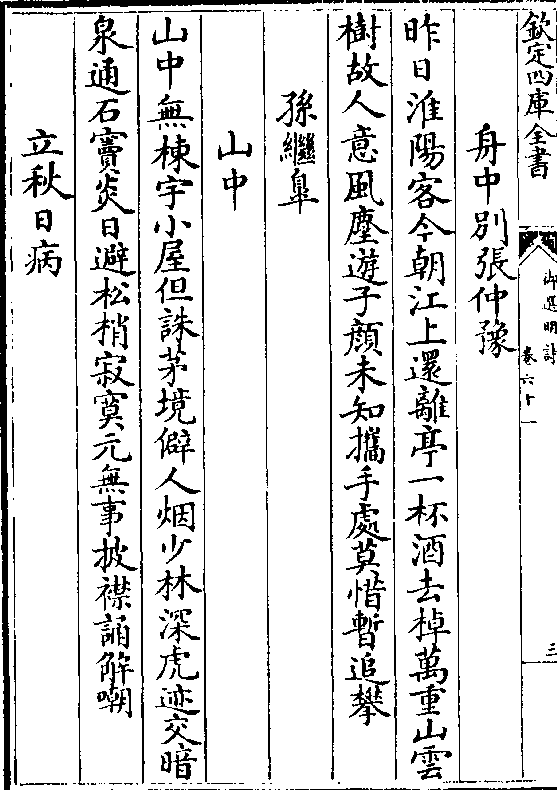 欽定四庫全書
御選明詩
卷六十一
三
舟中別張仲豫
昨日淮陽客今朝江上還離亭一杯酒去棹萬重山雲
樹故人意風塵遊子顔未知攜手處莫惜暫追攀
孫繼臯
山中
山中無棟宇小屋但誅茅境僻人烟少林深虎迹交暗
泉通石竇炎日避松梢寂寞元無事披襟誦解嘲
立秋日病